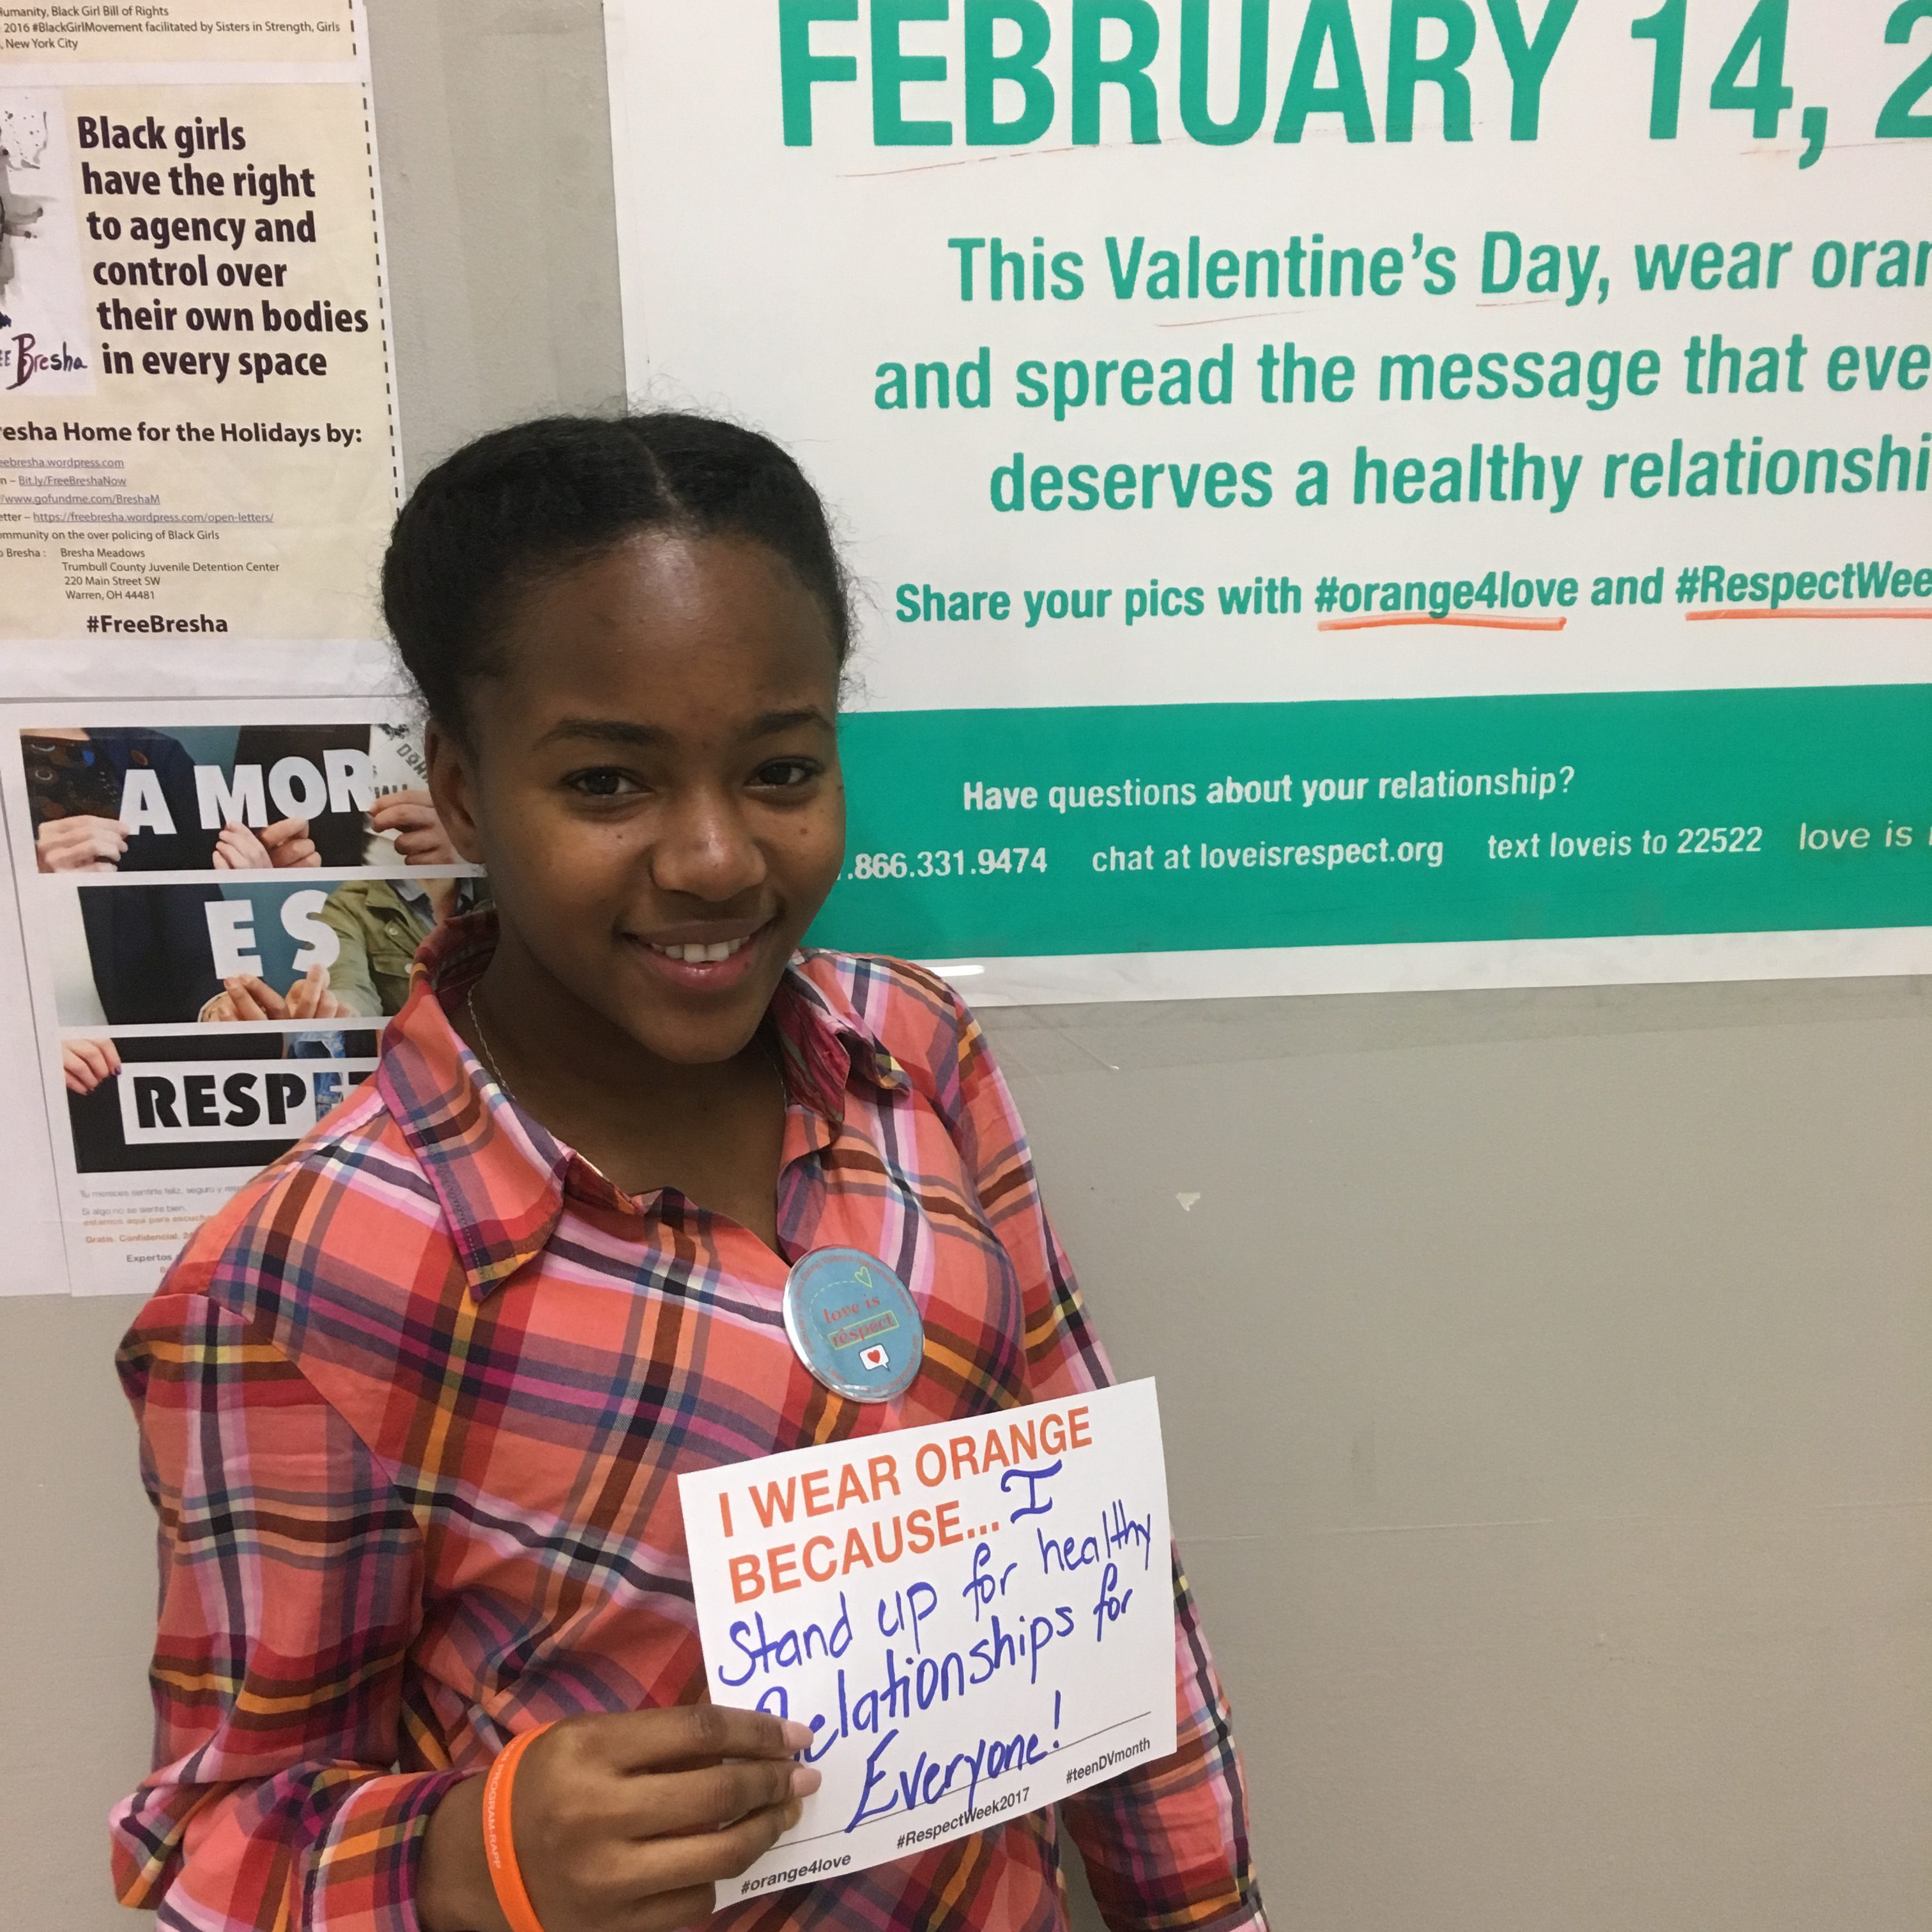 Humanity, Black Girl Bill of Rights
2016 #BlackGirlMovement facilitated by Sisters in Strength, Girls
, New York City
Black girls
have the right
to agency and
control over
their own bodies
in every space
Bresha
esha Home for the Holidays by:
eebresha.wordpress.com
n – Bit.ly/FreeBreshaNow
/www.gofundme.com/BreshaM
etter – https://freebresha.wordpress.com/open-letters/
mmunity on the over policing of Black Girls
o Bresha : Bresha Meadows
Trumbull County Juvenile Detention Center
220 Main Street SW
Warren, OH 44481
#FreeBresha
AMOR
ES
RESPE
Tu mereces sentirte feliz, seguro y resp
Si algo no se siente bien,
estamos aquí para escuch
Gratis. Confidencial. 2
Expertos
FEBRUARY 14, 2
This Valentine's Day, wear oran
and spread the message that eve
deserves a healthy relationshi
Share your pics with #orange4love and #RespectWee
Have questions about your relationship?
.866.331.9474 chat at loveisrespect.org text loveis to 22522 love is
love is
respect
I WEAR ORANGE
BECAUSE... I
Stand up for healthy
Relationships for
Everyone!
#orange4love #RespectWeek2017 #teenDVmonth
PROGRAM-RAPP